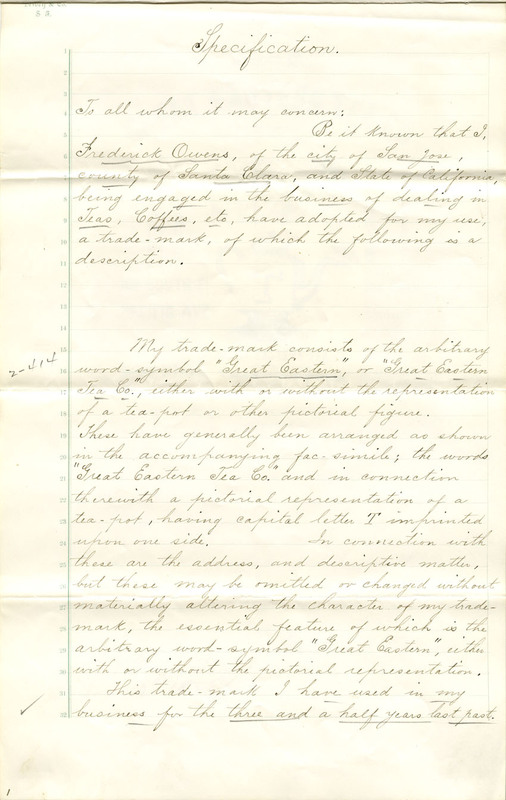 Specification.
To all whom it may concern:
Be it known that I,
Frederick Owens, of the city of San Jose,
county of Santa Clara, and State of California,
being engaged in the business of dealing in
Teas, Coffees, etc, have adopted for my use,
a trade-mark, of which the following is a
description.
My trade-mark consists of the arbitrary
word-symbol "Great Eastern", or "Great Eastern
Tea Co.", either with or without the representation
of a tea-pot or other pictorial figure.
These have generally been arranged as shown
in the accompanying fac-simile; the words
"Great Eastern Tea Co." and in connection
therewith a pictorial representation of a
tea-pot, having capital letter T imprinted
upon one side. In connection with
these are the address, and descriptive matter,
but these may be omitted or changed without
materially altering the character of my trade-
mark, the essential feature of which is the
arbitrary word-symbol "Great Eastern", either
with or without the pictorial representation.
This trade-mark I have used in my
business for the three and a half years last past.
2-414
1
2
3
4
5
6
7
8
9
10
11
12
13
14
15
16
17
18
19
20
21
22
23
24
25
26
27
28
29
30
31
32
1